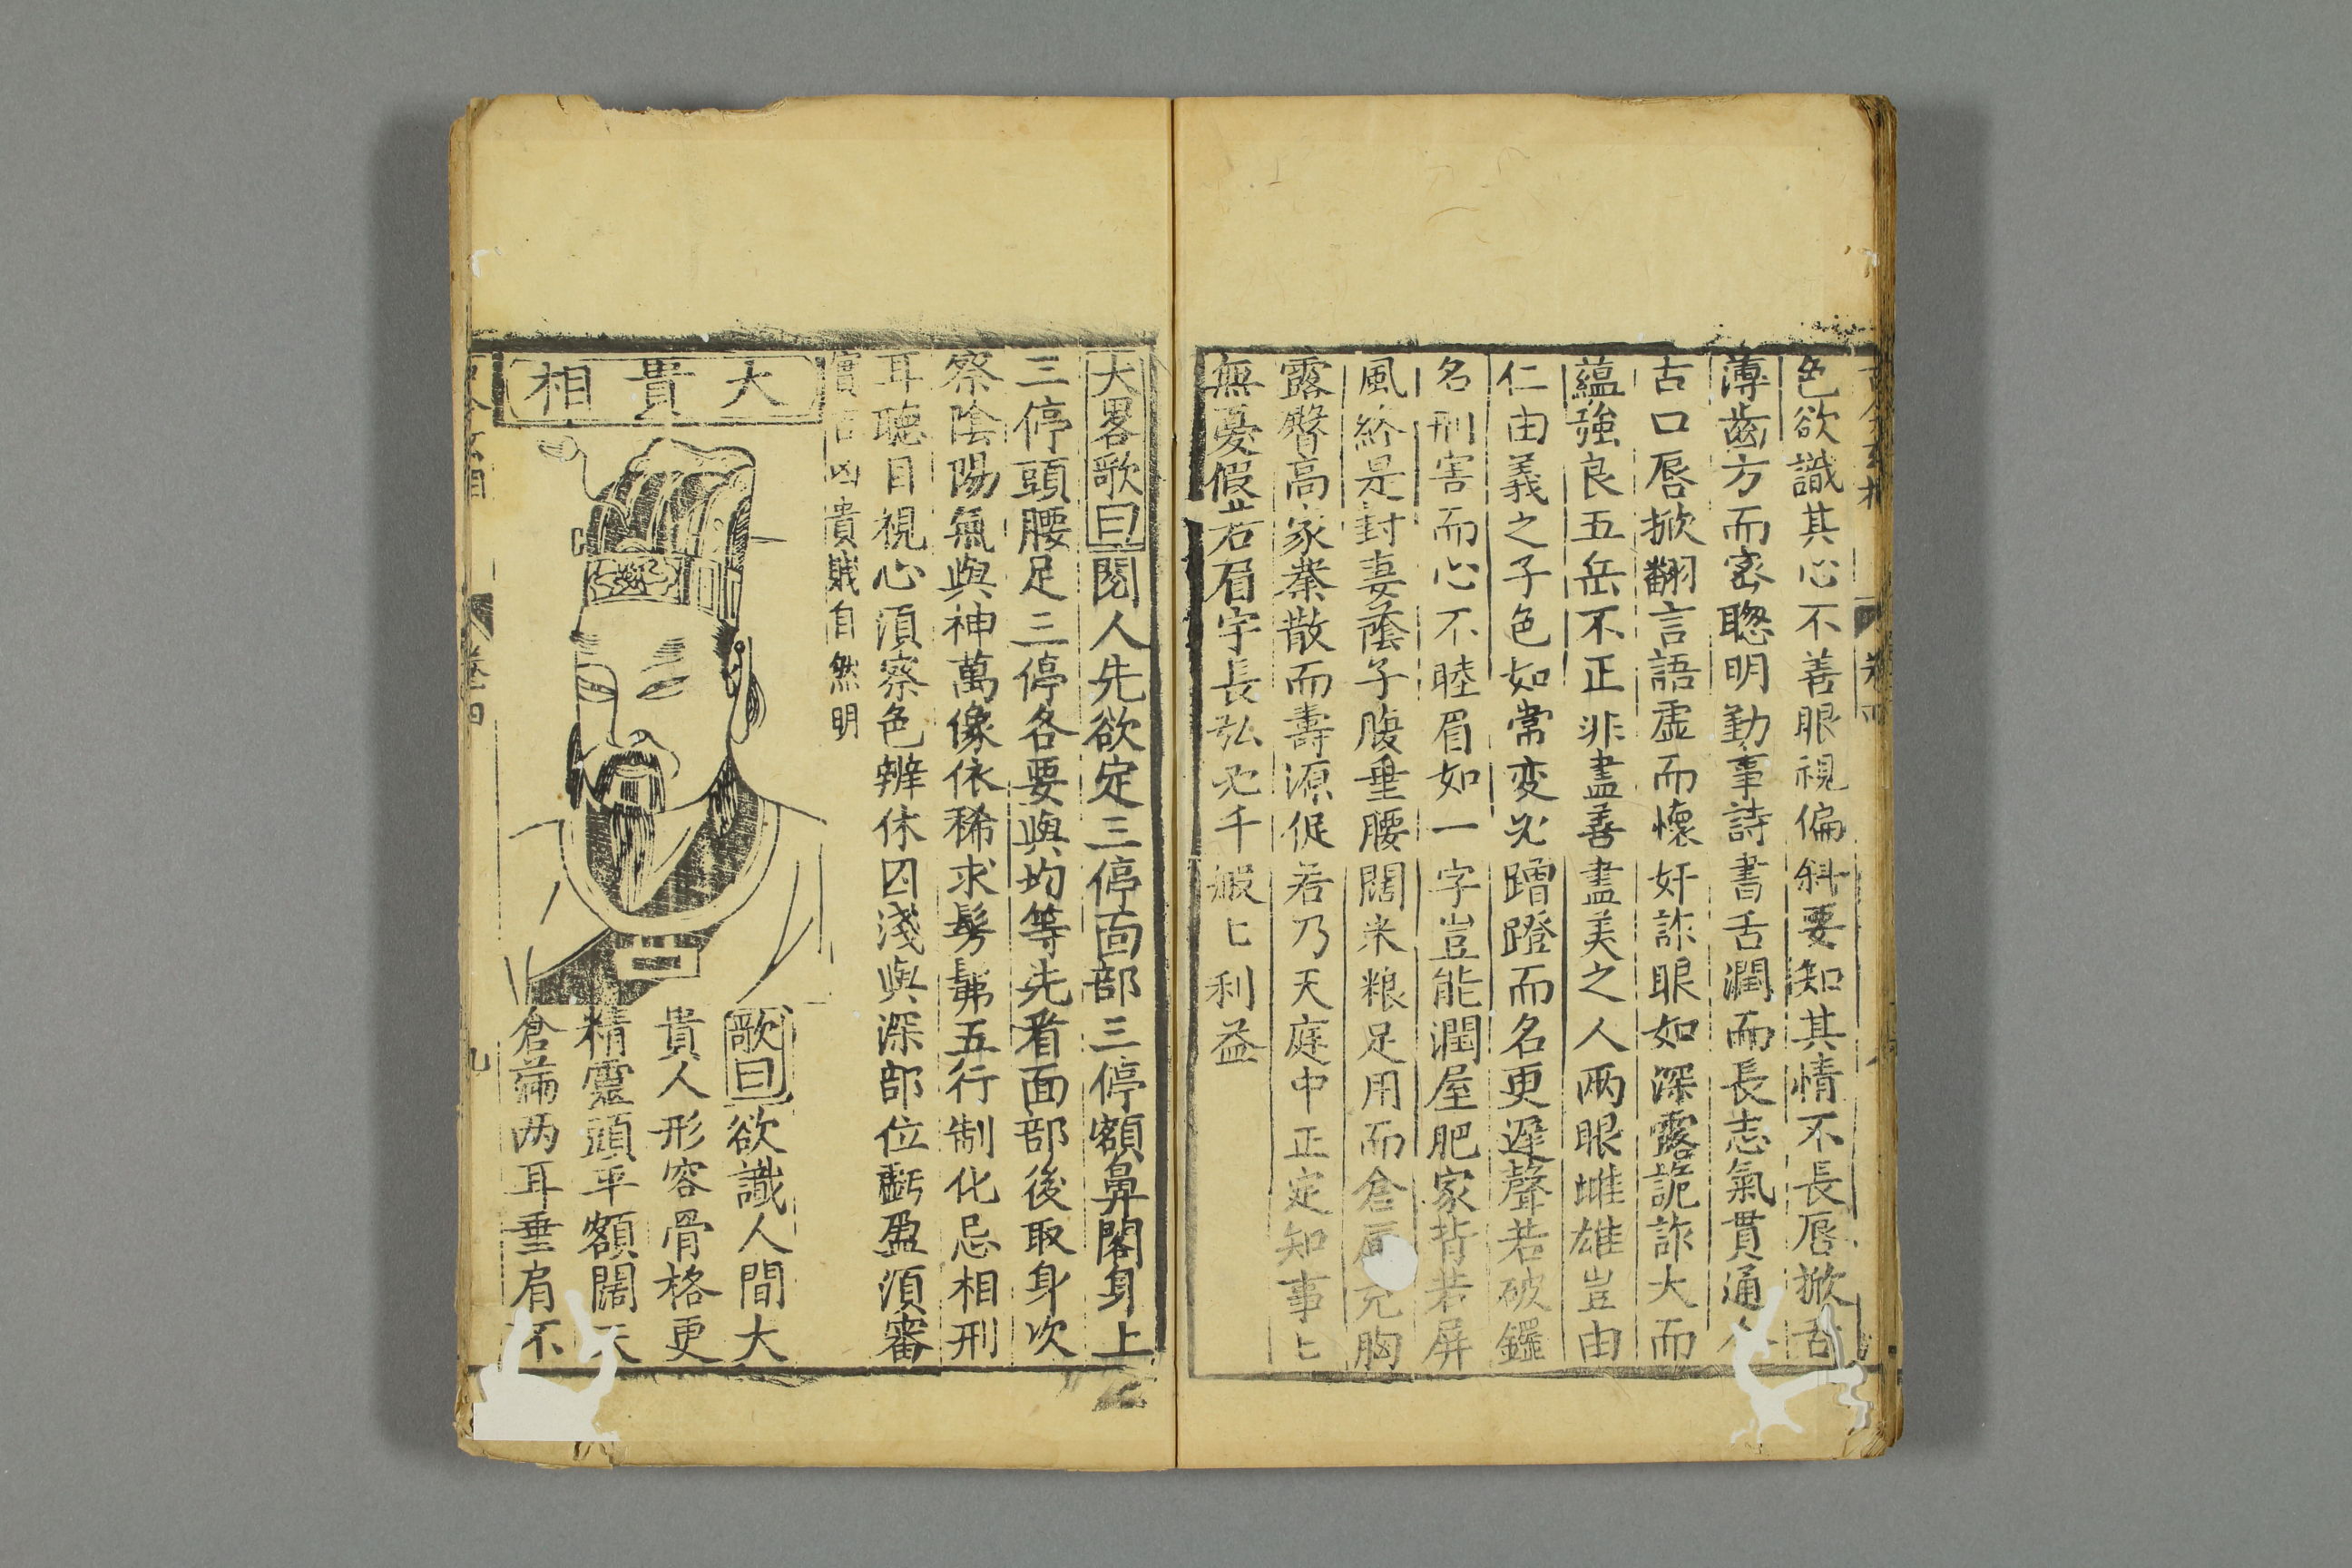 色欲識其心不善眼視偏斜要知其情不長唇掀舌
薄齒方而密聦明勤事詩書舌潤而長志氣貫通
古口唇掀翻言語虛而懷奸詐眼如深露詭詐大而
蘊強良五岳不正非盡善盡美之人両眼雌雄豈由
仁由義之子色如常变必蹭蹬而名更遲聲若破鑼
名刑害而心不睦眉如一字豈能潤屋肥家背若屏
風終是封妻蔭子腹垂腰闊米粮足用而倉充胸
露臀高家業散而壽源促若乃天庭中正定知事匕
無憂假若眉宇長弘必千般匕利益
大畧歌曰閱人先欲定三停面部三停額鼻閣身上
三停頭腰足三停各要與均等先看面部後取身次
察陰陽氣與神萬像依稀求髣髴五行制化忌相刑
耳聽目視心須察色辨休囚淺與深部位虧盈須審
實吉凶貴賤自然明
大貴相
歌曰欲識人間大
貴人形容骨格更
精靈頭平額闊天
倉滿両耳垂肩不
卷四
九